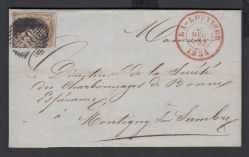 LA-LOUVIÈRE
1855
Mon
Directeur de la Société
des Charbonnages de Bonne
Espérance
à
Montigny sur Sambre